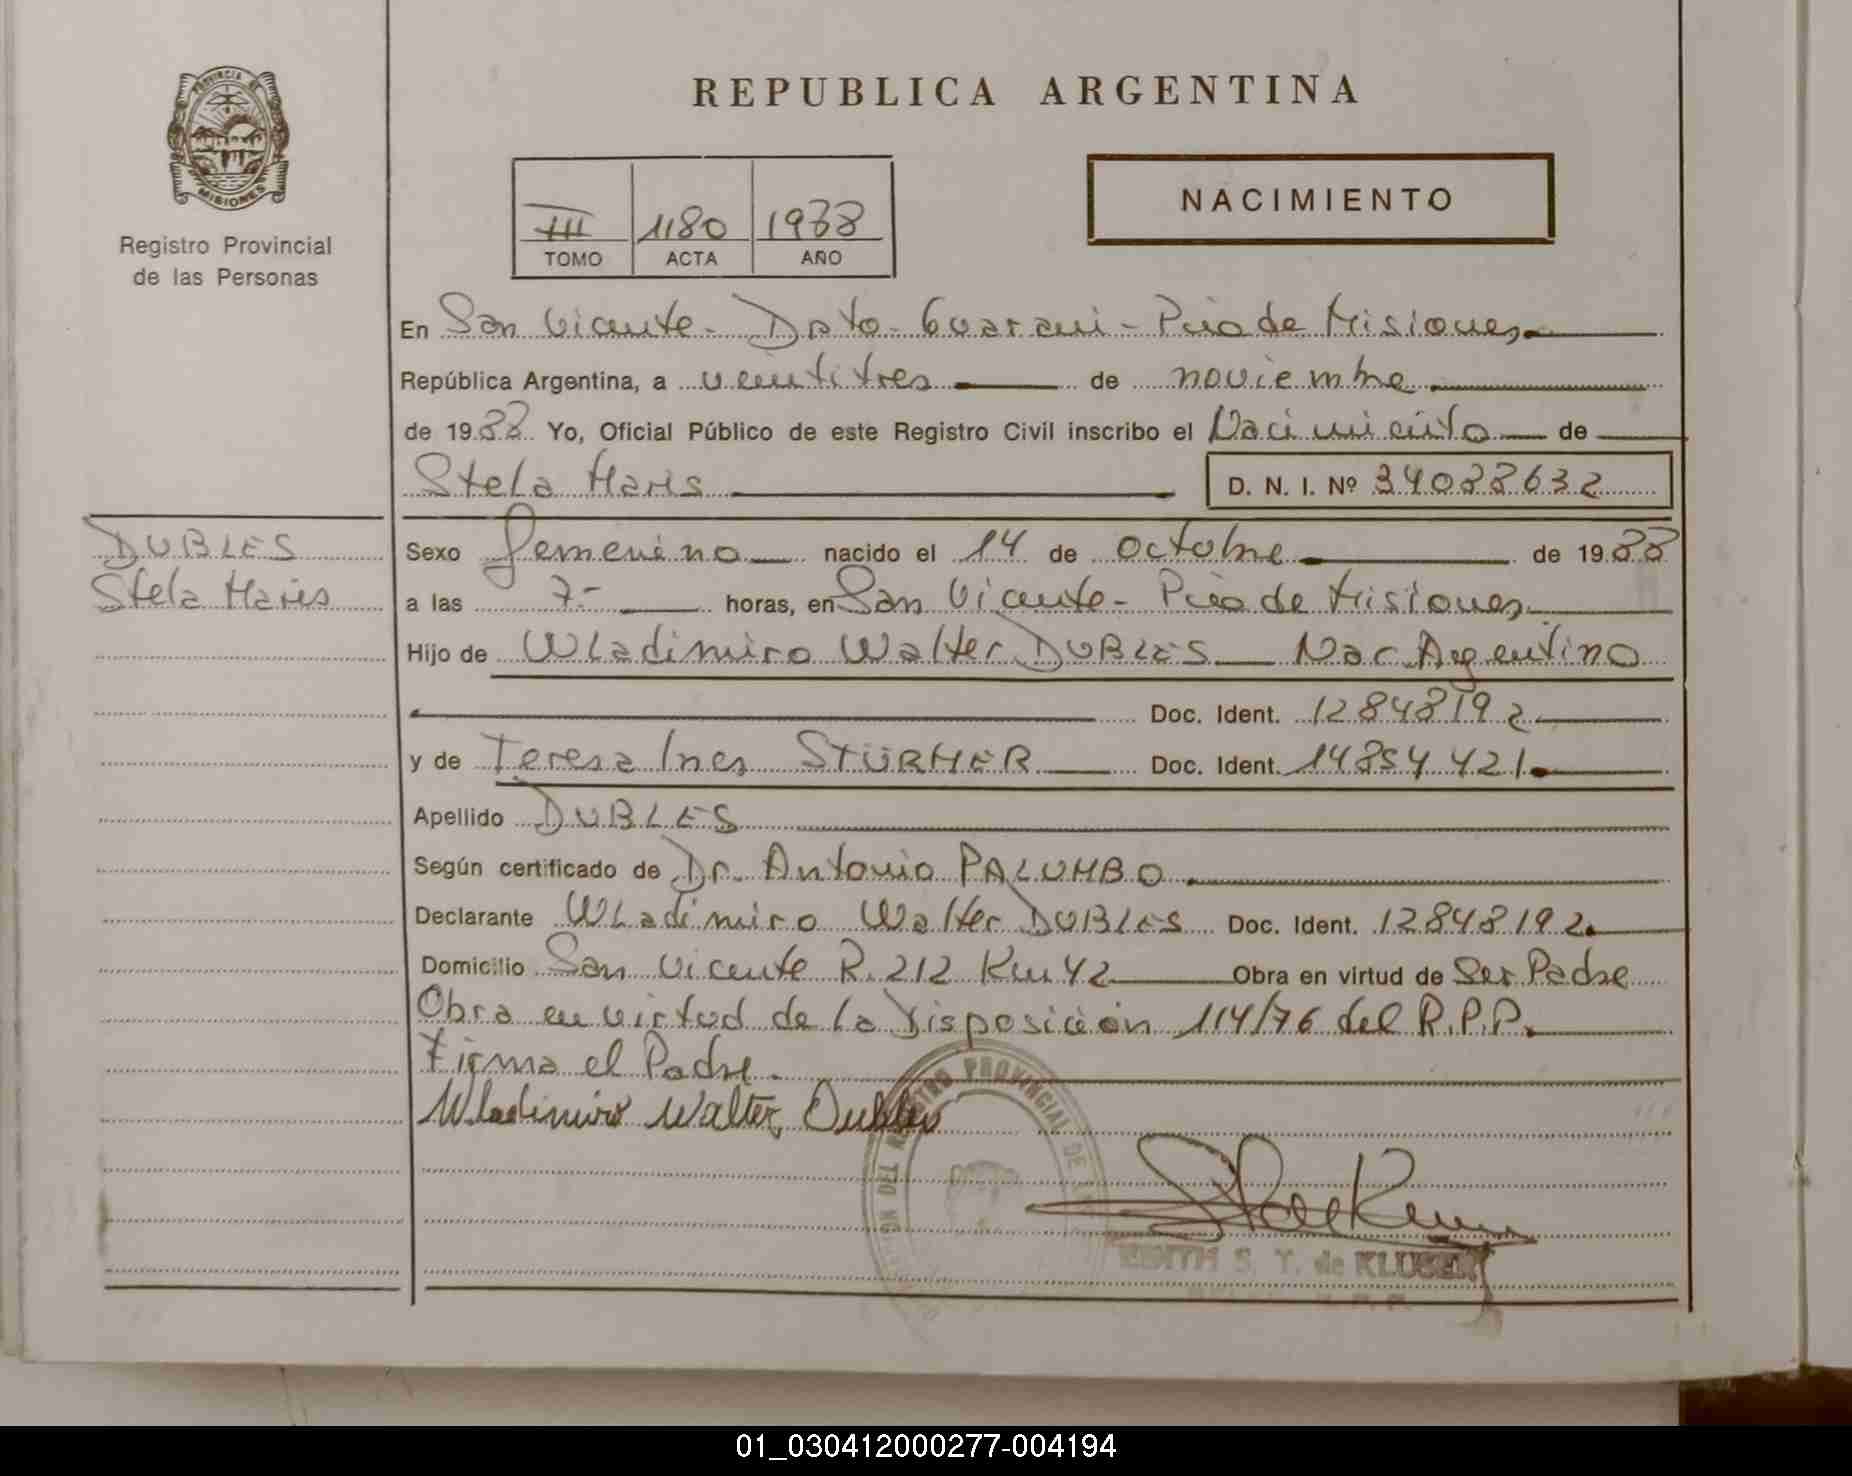 PROVINCIA DE
MISIONES
Registro Provincial
de las Personas
REPUBLICA ARGENTINA
III 1180 1988
TOMO ACTA AÑO
NACIMIENTO
En San Vicente - Dpto - Guarani - Pcia de Misiones
República Argentina, a veintitres de noviembre
de 1988 Yo, Oficial Público de este Registro Civil inscribo el Nacimiento de
Stela Maris D. N. I. Nº 34088632
DUBLES
Stela Maris
Sexo femenino nacido el 14 de octubre de 1988
a las 7.- horas, en San Vicente - Pcia de Misiones
Hijo de Wladimiro Walter DUBLES Nac Argentino
Doc. Ident. 12848192
y de Teresa Ines STÜRMER Doc. Ident. 14854421
Apellido DUBLES
Según certificado de Dr. Antonio PALUMBO
Declarante Wladimiro Walter DUBLES Doc. Ident. 12848192
Domicilio San Vicente R. 212 Km 42 Obra en virtud de Ser Padre
Obra en virtud de la Disposición 114/76 del R.P.P.
Firma el Padre.
Wladimiro Walter Dubles
DEL REGISTRO PROVINCIAL DE
EDITH S. T. de KLUSER
01_030412000277-004194